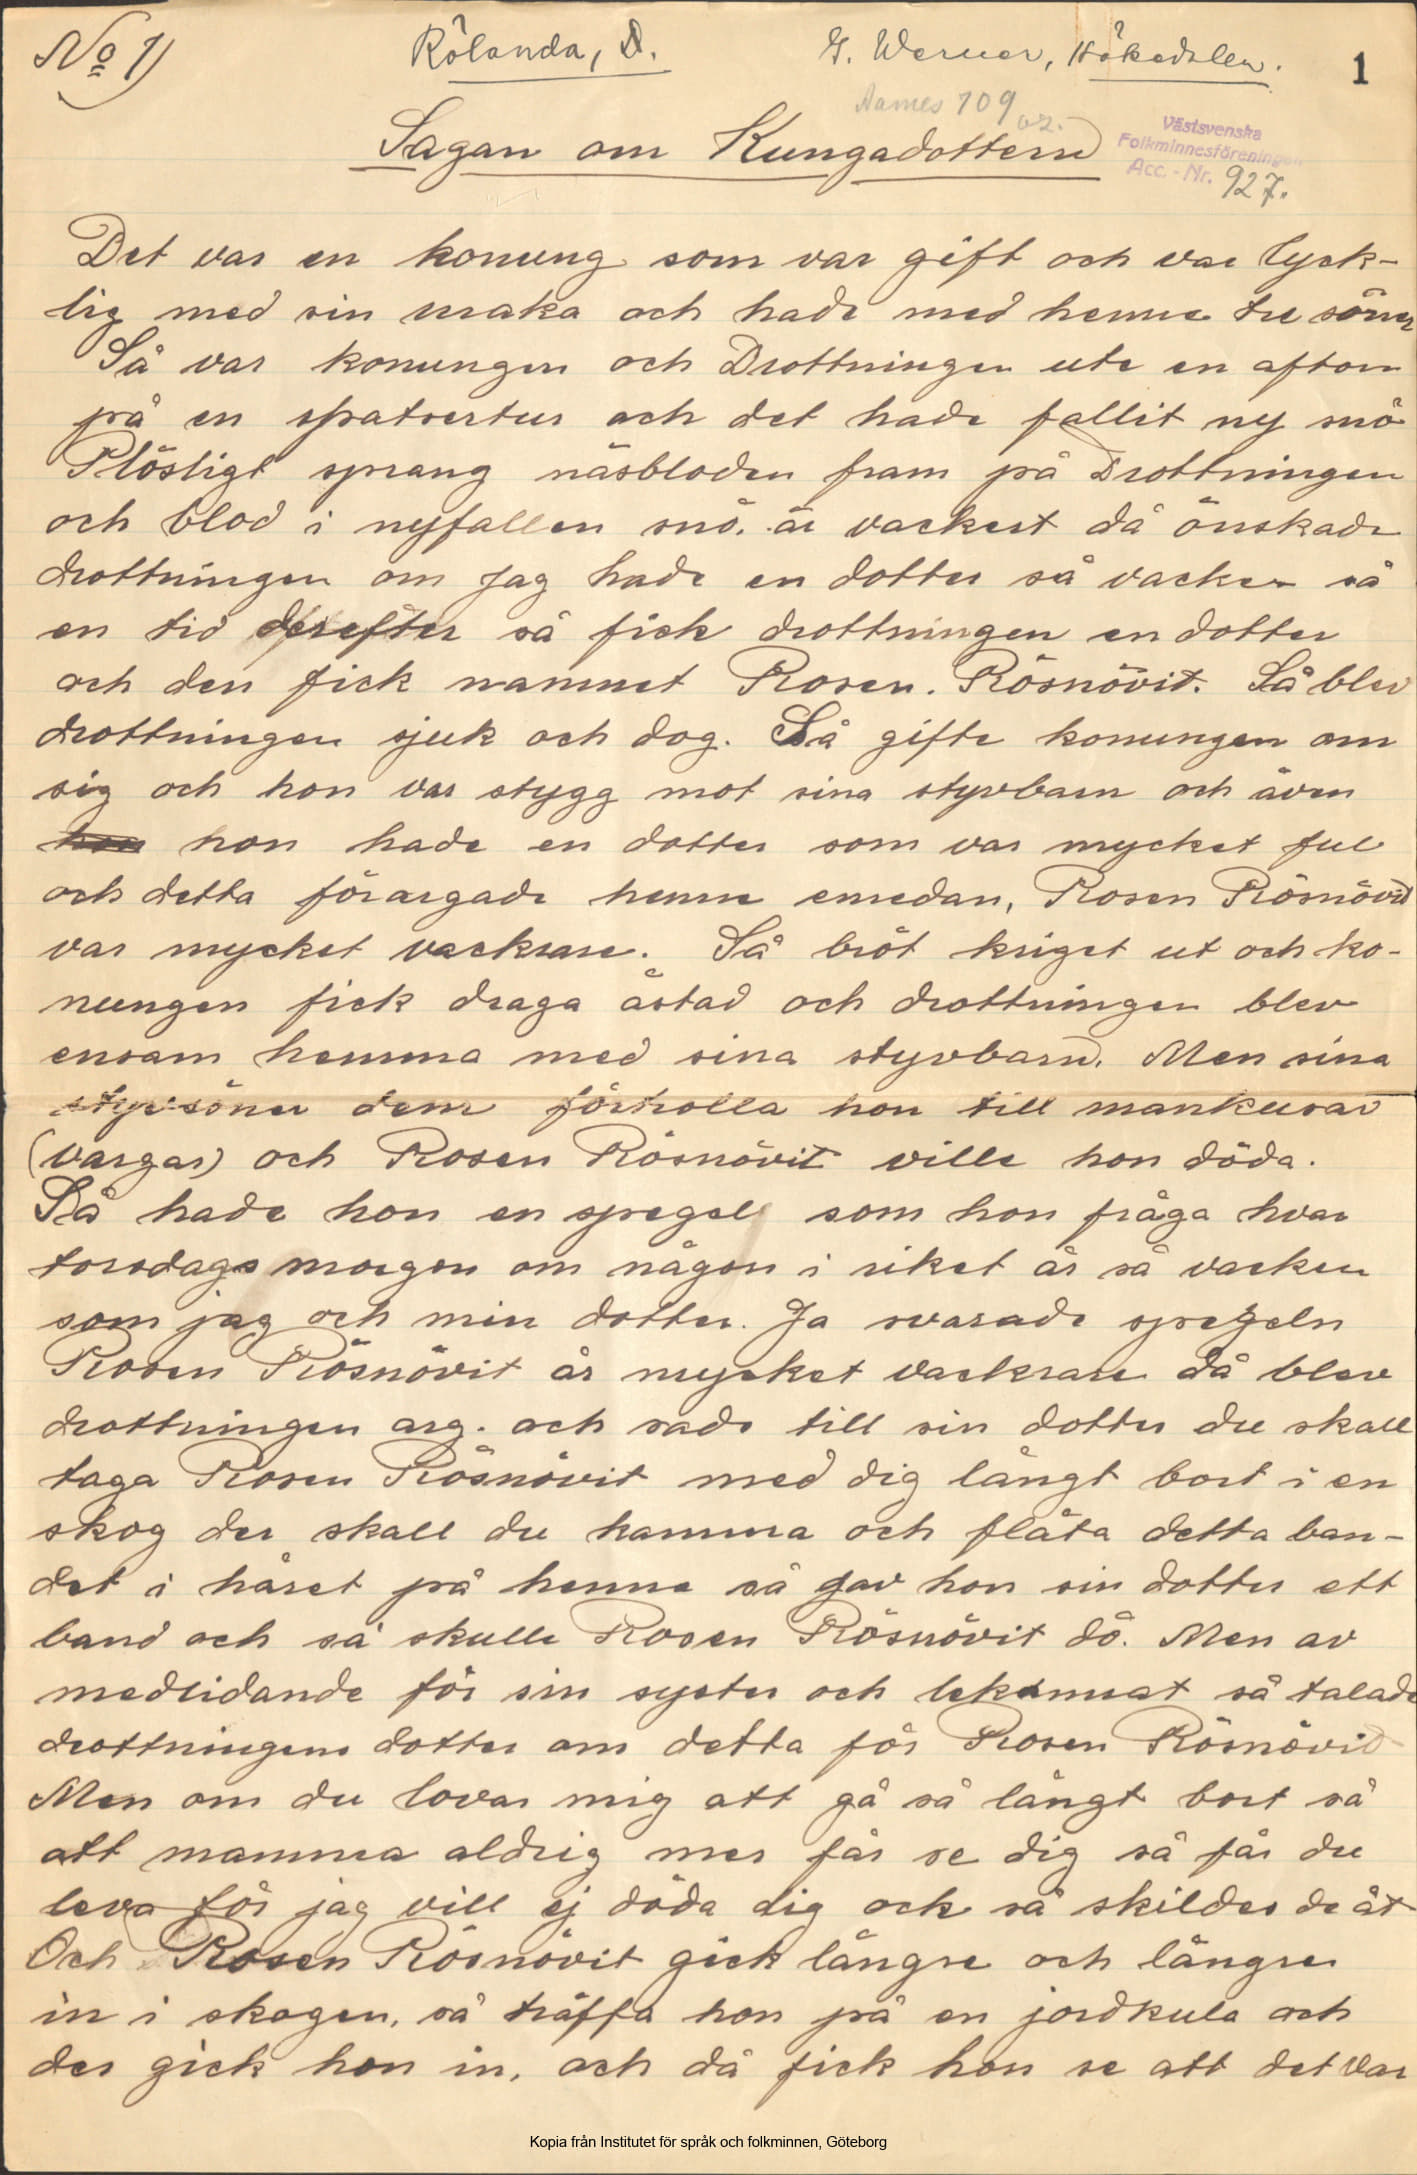 No 1) Rölanda, D. G. Werner, Hökedalen. 1
Aarnes 709
Sagan om Kungadottern
Västsvenska
Folkminnesföreningen
Acc.-Nr. 927.
Det var en konung som var gift och var lyck-
lig med sin maka och hade med henne tre söner
Så var konungen och Drottningen ute en afton
på en spatsertur och det hade fallit ny snö
Plösligt sprang näsbloden fram på Drottningen
och blod i nyfallen snö. är vackert då önskade
drottningen om jag hade en dotter så vacker så
en tid derefter så fick drottningen en dotter
och den fick namnet Rosen. Rösnövit. Så blev
drottningen sjuk och dog. Så gifte konungen om
sig och hon var stygg mot sina styvbarn och även
hon hon hade en dotter som var mycket ful
och detta förargade henne emedan, Rosen Rösnövit
var mycket vackrare. Så bröt kriget ut och ko-
nungen fick draga åstad och drottningen blev
ensam hemma med sina styvbarn. Men sina
styvsöner dem förtrolla hon till mankusar
(vargar) och Rosen Rösnövit ville hon döda.
Så hade hon en spegel som hon fråga hvar
torsdags morgon om någon i riket är så vacker
som jag och min dotter. Ja svarade spegeln
Rosen Rösnövit är mycket vackrare då blev
drottningen arg. och sade till sin dotter du skall
taga Rosen Rösnövit med dig långt bort i en
skog der skall du kamma och fläta detta ban-
det i håret på henne så gav hon sin dotter ett
band och så skulle Rosen Rösnövit dö. Men av
medlidande för sin syster och lekamrat så talade
drottningens dotter om detta för Rosen Rösnövit
Men om du lovar mig att gå så långt bort så
att mamma aldrig mer får se dig så får du
leva för jag vill ej döda dig och så skildes de åt
Och Rosen Rösnövit gick längre och längre
in i skogen, så träffa hon på en jordkula och
der gick hon in, och då fick hon se att det var
Kopia från Institutet för språk och folkminnen, Göteborg